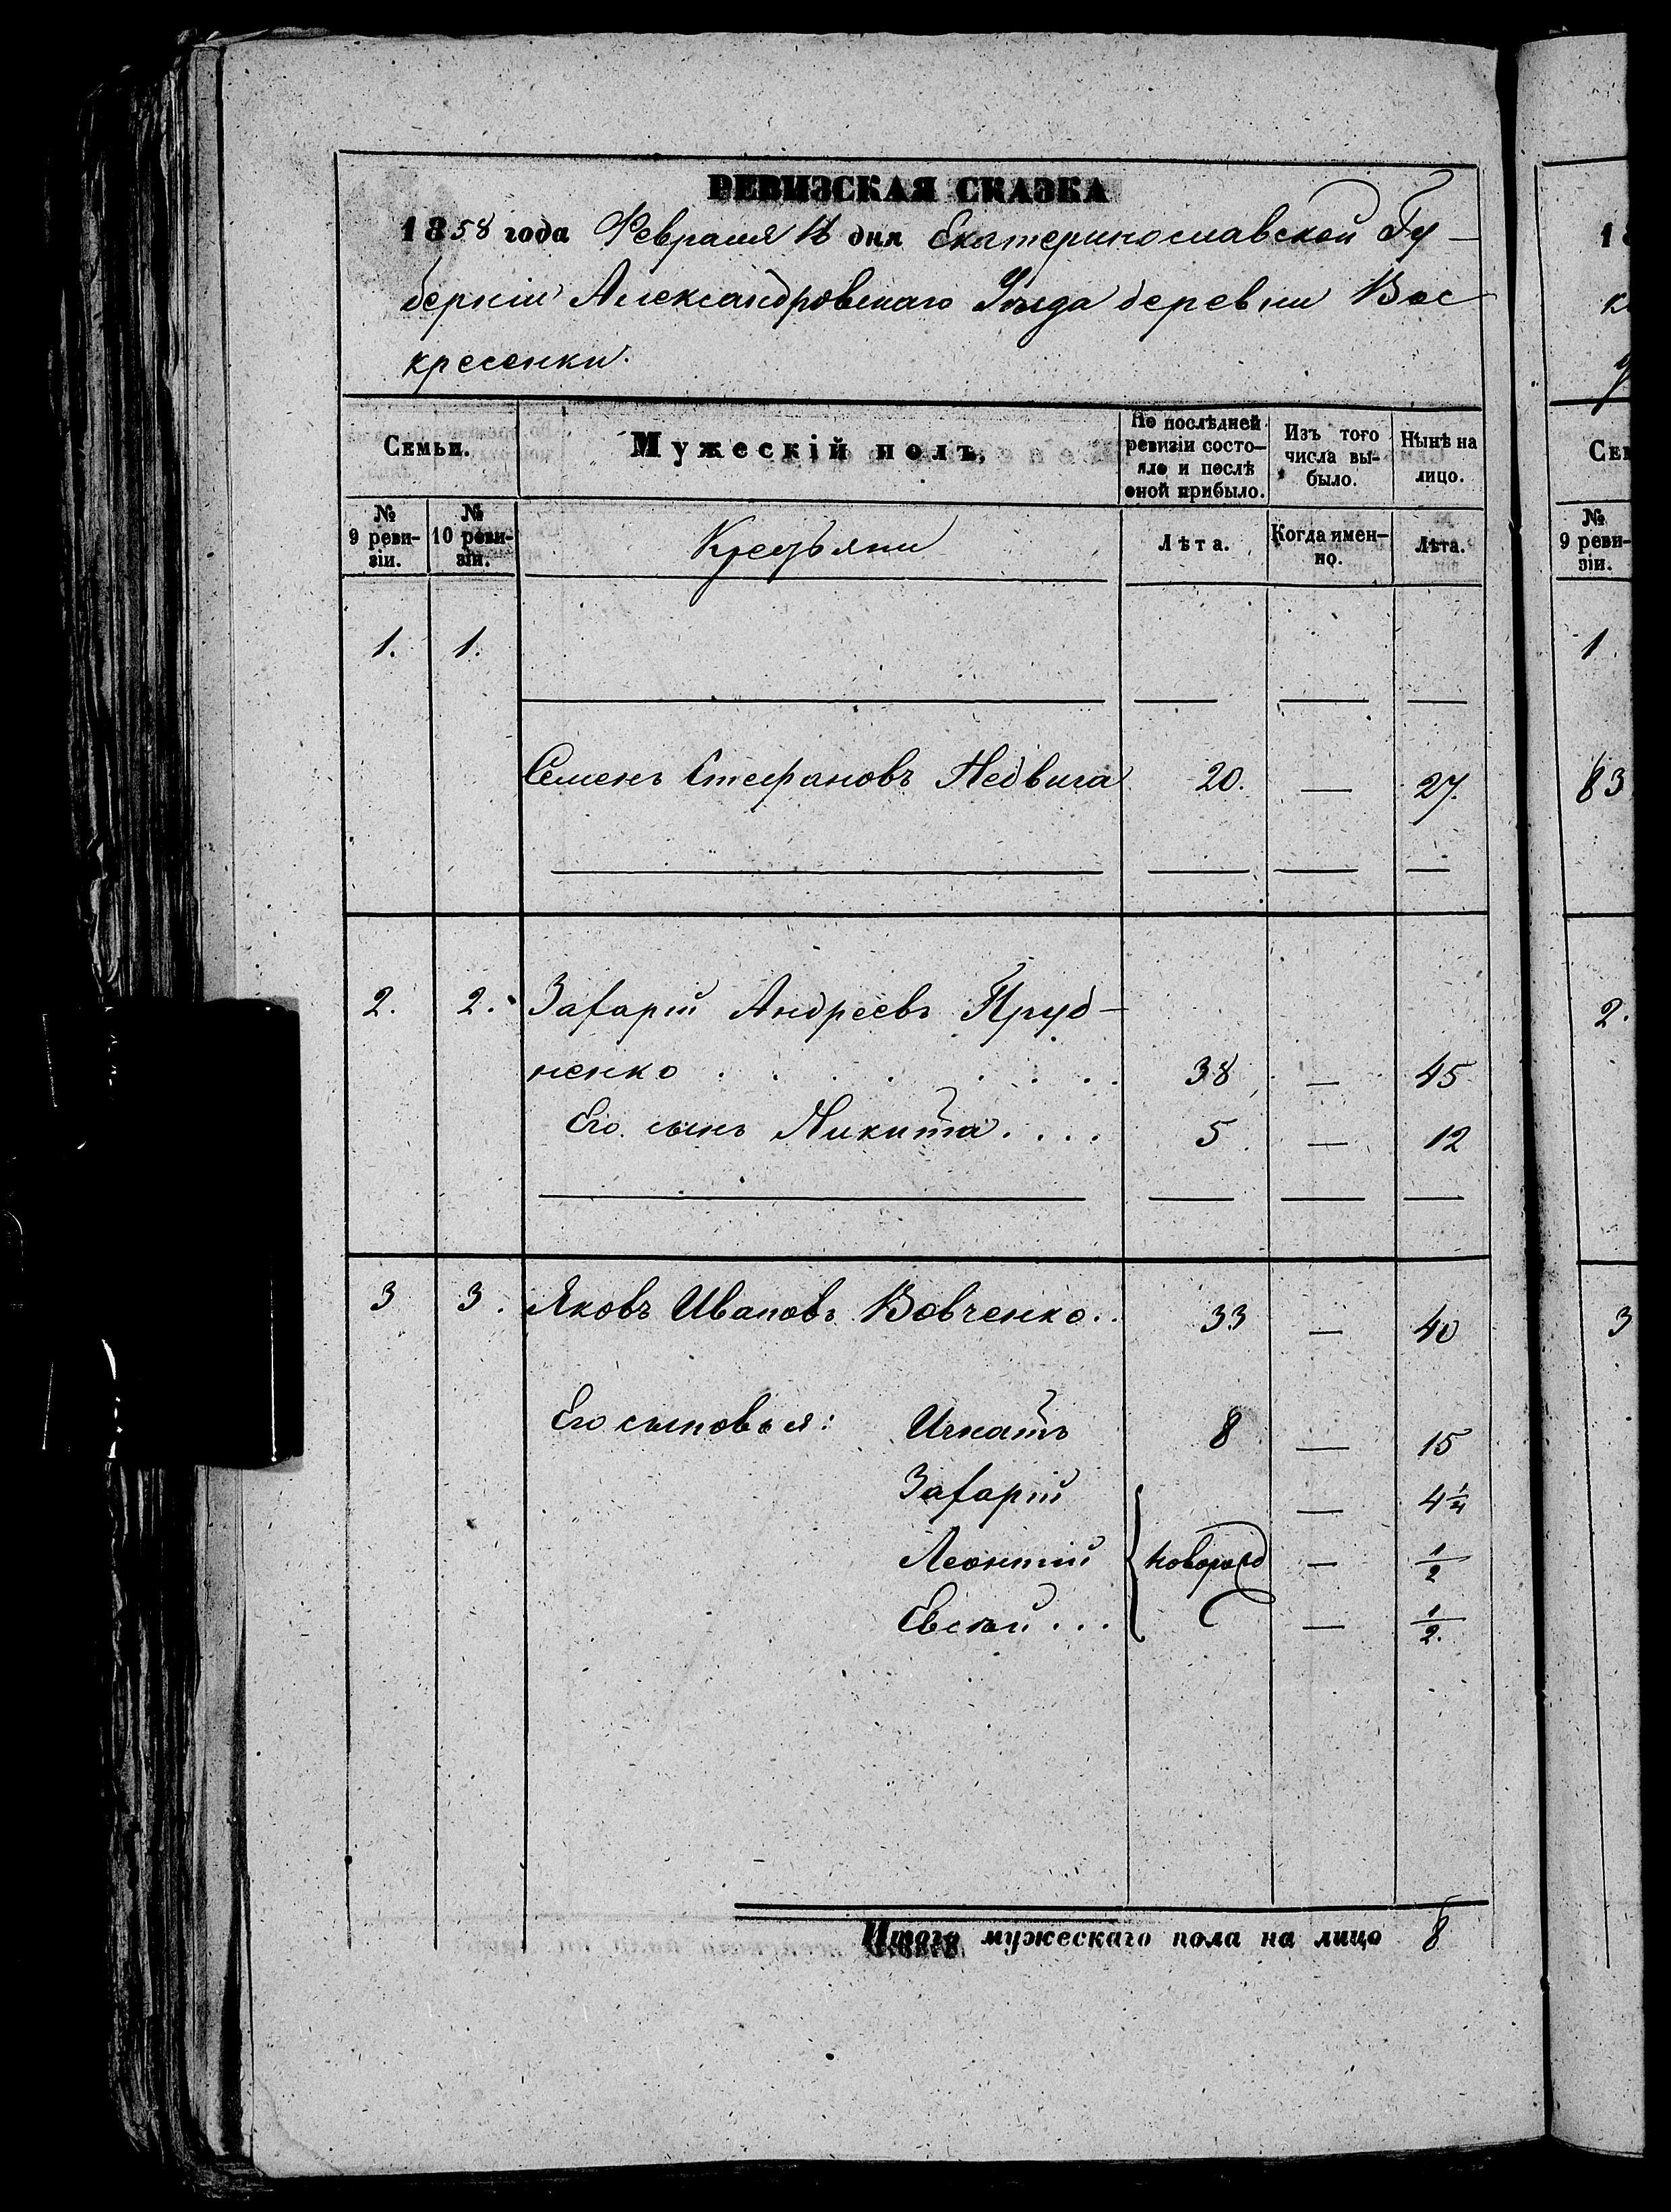 РЕВИЗСКАЯ СКАЗКА
1858 года Февраля дня Екатеринославской Гу-
берніи Александровскаго Уѣзда деревни Вос
кресенки.
Семьи. Мужескій полъ, По послѣдней ревизіи состо- яло и послѣ оной прибыло. Изъ того числа вы- было. Нынѣ на лицо.
№ 9 реви- зіи. № 10 реви- зіи. Лѣта. Когда имен- но. Лѣта.
1. 1.
Семенъ Стефановъ Недвига 20. — 27.
2. 2. Захарій Андреевъ Пруд-
ненко . . . . . . . . 38 — 45
Его сынъ Никита . . . . 5 — 12
3 3. Яковъ Ивановъ Вовченко . . 33 — 40
Его сыновья: Игнатъ 8 — 15
Захарій — 4 1/4
Леонтій новорожд — 1/2
Евсѣй . . . — 1/2.
Итого мужескаго пола на лицо 8
18
Сем
№ 9 реви- зіи.
1
83
2.
3